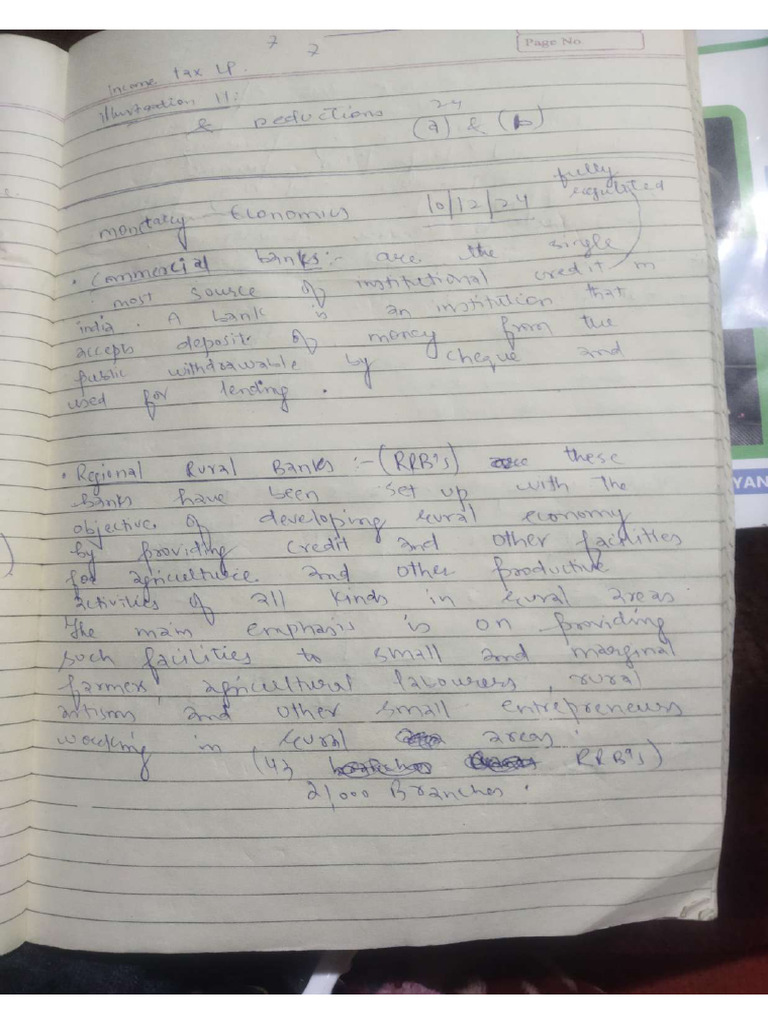 7 7
Page No
Income tax LP.
Illustration 11:
& Deductions 24 (a) & (b)
Monetary Economics 10/12/24 fully
regulated
• Commercial banks:- are the single
most source of institutional credit in
india. A bank is an institution that
accepts deposit of money from the
public withdrawable by cheque and
used for lending.
• Regional Rural Banks :- (RRB's) these
Banks have been set up with the
objective of developing rural economy
by providing credit and other facilities
for agriculture and other productive
activities of all kinds in rural areas.
The main emphasis is on providing
such facilities to small and marginal
farmer, agricultural labourers, rural
artisms and other small entrepreneurs
working in rural areas.
(43 RRB's)
21,000 Branches.
YAN